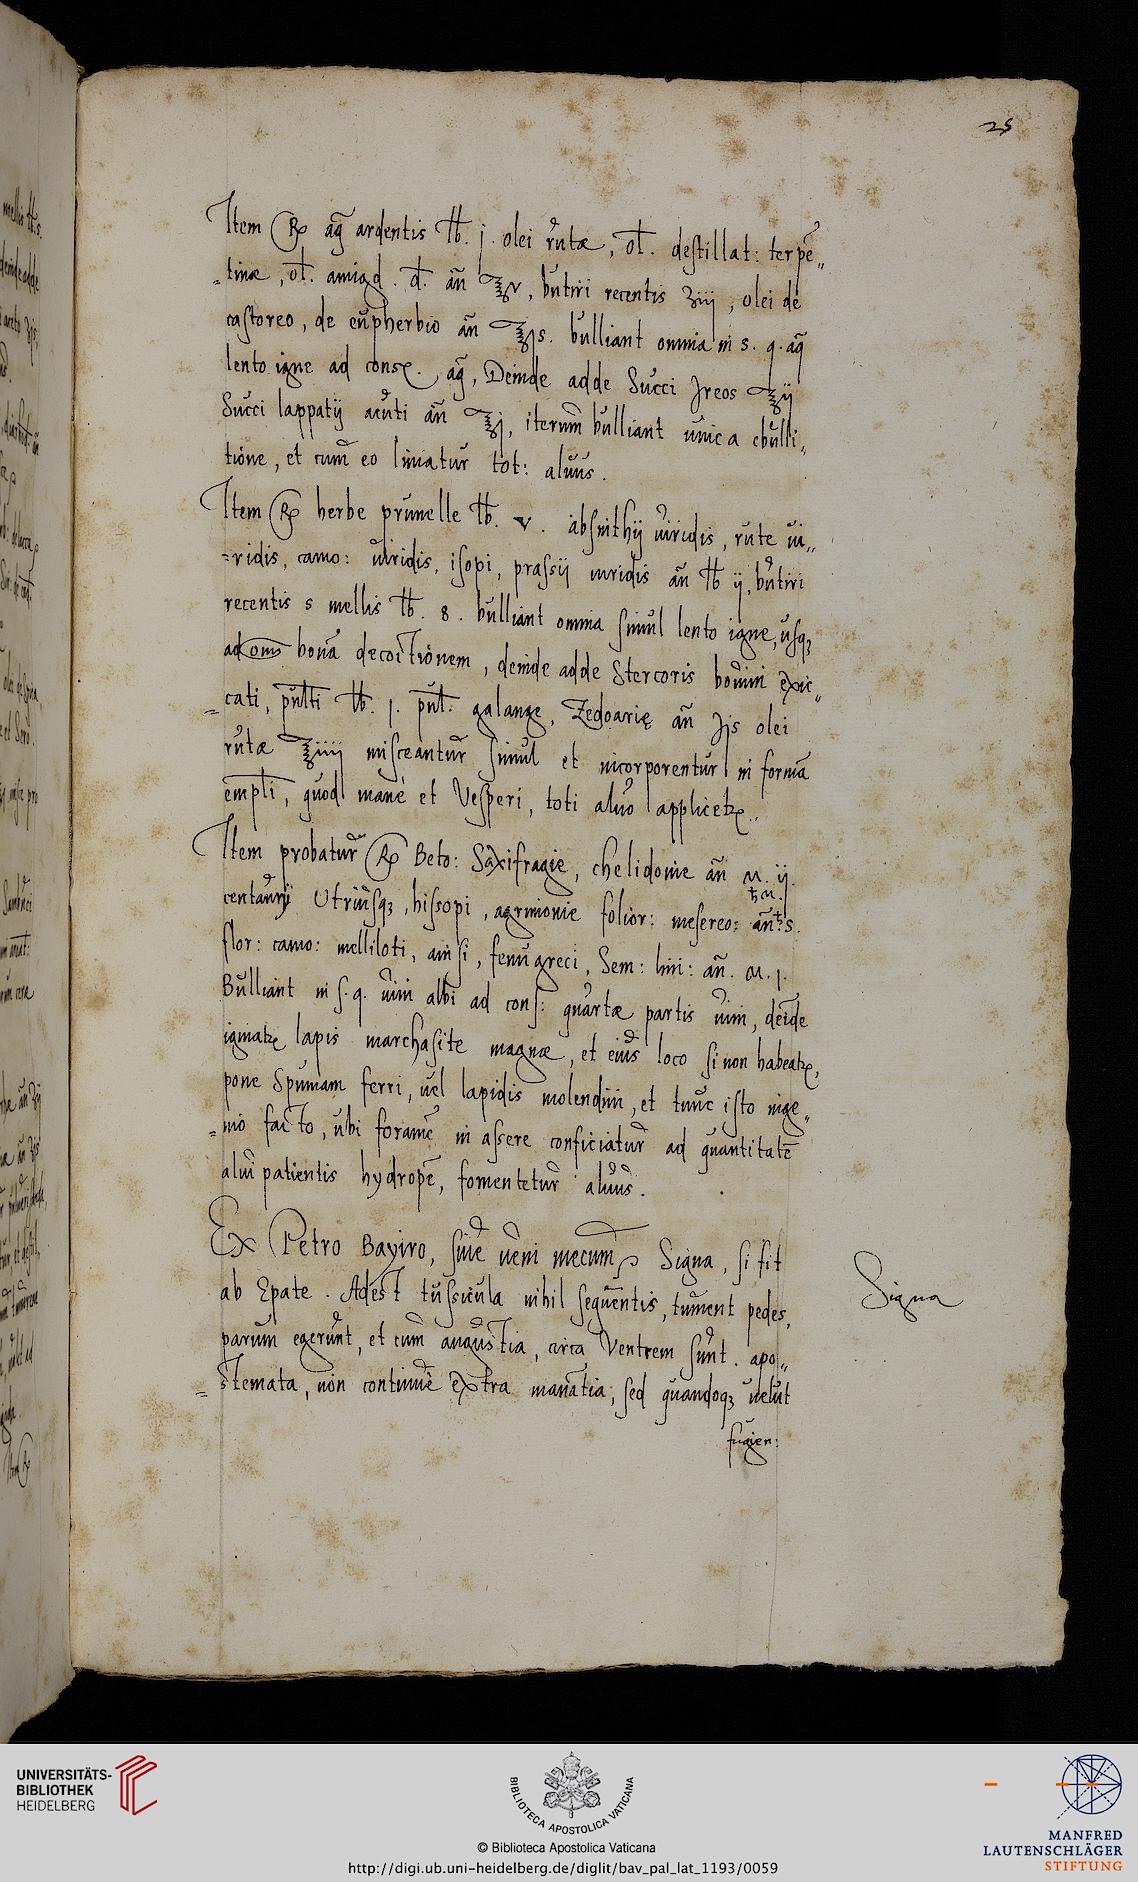 25
Item ℞ aq̃ ardentis ℔. j. olei rutæ, ol. destillat: terpē„
„tinæ, ol. amigd. d. añ ℥v, butiri recentis ʒiij, olei de
castoreo, de eupherbio añ ℥js. bulliant omnia in s. q. aq̃
lento igne ad cons. aq̃, Deinde adde Succi Jreos ℥ij
Succi lappatij acuti añ ℥j, iterum bulliant unica ebulli„
tione, et cum eo liniatur tot: aluus.
Item ℞ herbe prunelle ℔. v. absinthij viridis, rute ui„
=ridis, camo: uiridis, isopi, prassij uiridis añ ℔ ij, butiri
recentis s mellis ℔. 8. bulliant omnia simul lento igne, usqꝫ
ad bonā decoctionem, deinde adde Stercoris bouini exic„
=cati, ℔. j. pul. galange, Zedoarię añ ʒjs olei
rutæ ℥iiij misceantur simul et incorporentur in forma
empli, quod mane et Vesperi, toti aluo applicetꝛ.
Item probatur ℞ Beto: Saxifragie, chelidonie añ M. ij.
centaurij Utriusqꝫ, hissopi, agrimonie folior: mesereo: añ s.
flor: camo: melliloti, anisi, fenugreci, Sem: lini: añ. M. j.
Bulliant in s. q. uini albi ad cons: quartæ partis uini, deīde
igniatꝛ lapis marchasite magnæ, et eius loco si non habeatꝛ,
pone Spumam ferri, uel lapidis molendini, et tunc isto inge„
=nio facto, ubi foramē in assere conficiatur ad quantitatē
alui patientis hydropē, fomentetur aluus.
Ex Petro Bayiro, siue ueni mecum Signa, si fit
ab Epate. Adest tussicula nihil sequentis, tument pedes,
parum egerunt, et cum angustia, circa Ventrem sunt. apo„
=stemata, non continue extra manātia, sed quandoqꝫ uelut
fugien:
Signa
UNIVERSITÄTS-
BIBLIOTHEK
HEIDELBERG
BIBLIOTECA APOSTOLICA VATICANA
© Biblioteca Apostolica Vaticana
http://digi.ub.uni-heidelberg.de/diglit/bav_pal_lat_1193/0059
MANFRED
LAUTENSCHLÄGER
STIFTUNG